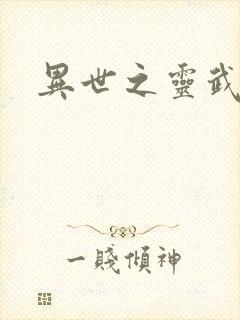 異世之靈武
一賤傾神